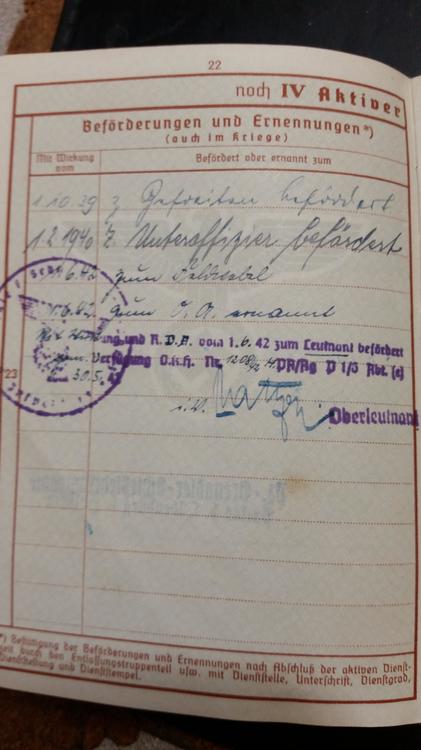 22
noch IV Aktiver
Beförderungen und Ernennungen*)
(auch im Kriege)
Mit Wirkung vom
Befördert oder ernannt zum
1.10.39 z. Gefreiten befördert
1.2.1940 z. Unteroffizier befördert
.6.42 zum Feldwebel
1.6.42 zum O.A. ernannt
und R.D.A. vom 1.6.42 zum Leutnant befördert
Verfügung O.K.H. Nr. PA/Ag P 1/5 Abt. (c)
30.5.
i.V. Oberleutnant
*) Bestätigung der Beförderungen und Ernennungen nach Abschluß der aktiven Dienst-
zeit durch den Entlassungstruppenteil usw. mit Dienststelle, Unterschrift, Dienstgrad,
Dienststellung und Dienststempel.